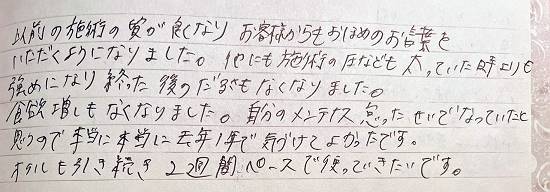 以前の施術の質が良くなり お客様からもおほめのお言葉を
いただくようになりました。 他にも施術の圧なども 太っていた時よりも
強めになり 終った後のだるさもなくなりました。
食欲増しもなくなりました。 自分のメンテナス怠ったせいでなっていたと
思うので 本当に本当に去年1年で気づけてよかったです。
オイルも引き続き 2 2回 ペースで使っていきたいです。